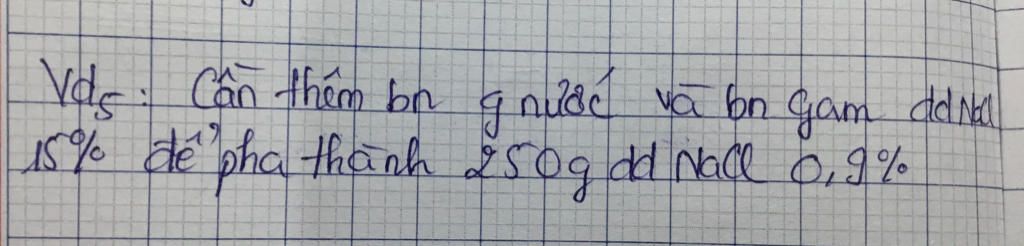 Vd5: Cần thêm bn g nước và bn gam dd NaCl
15% để pha thành 250g dd NaCl 0,9%